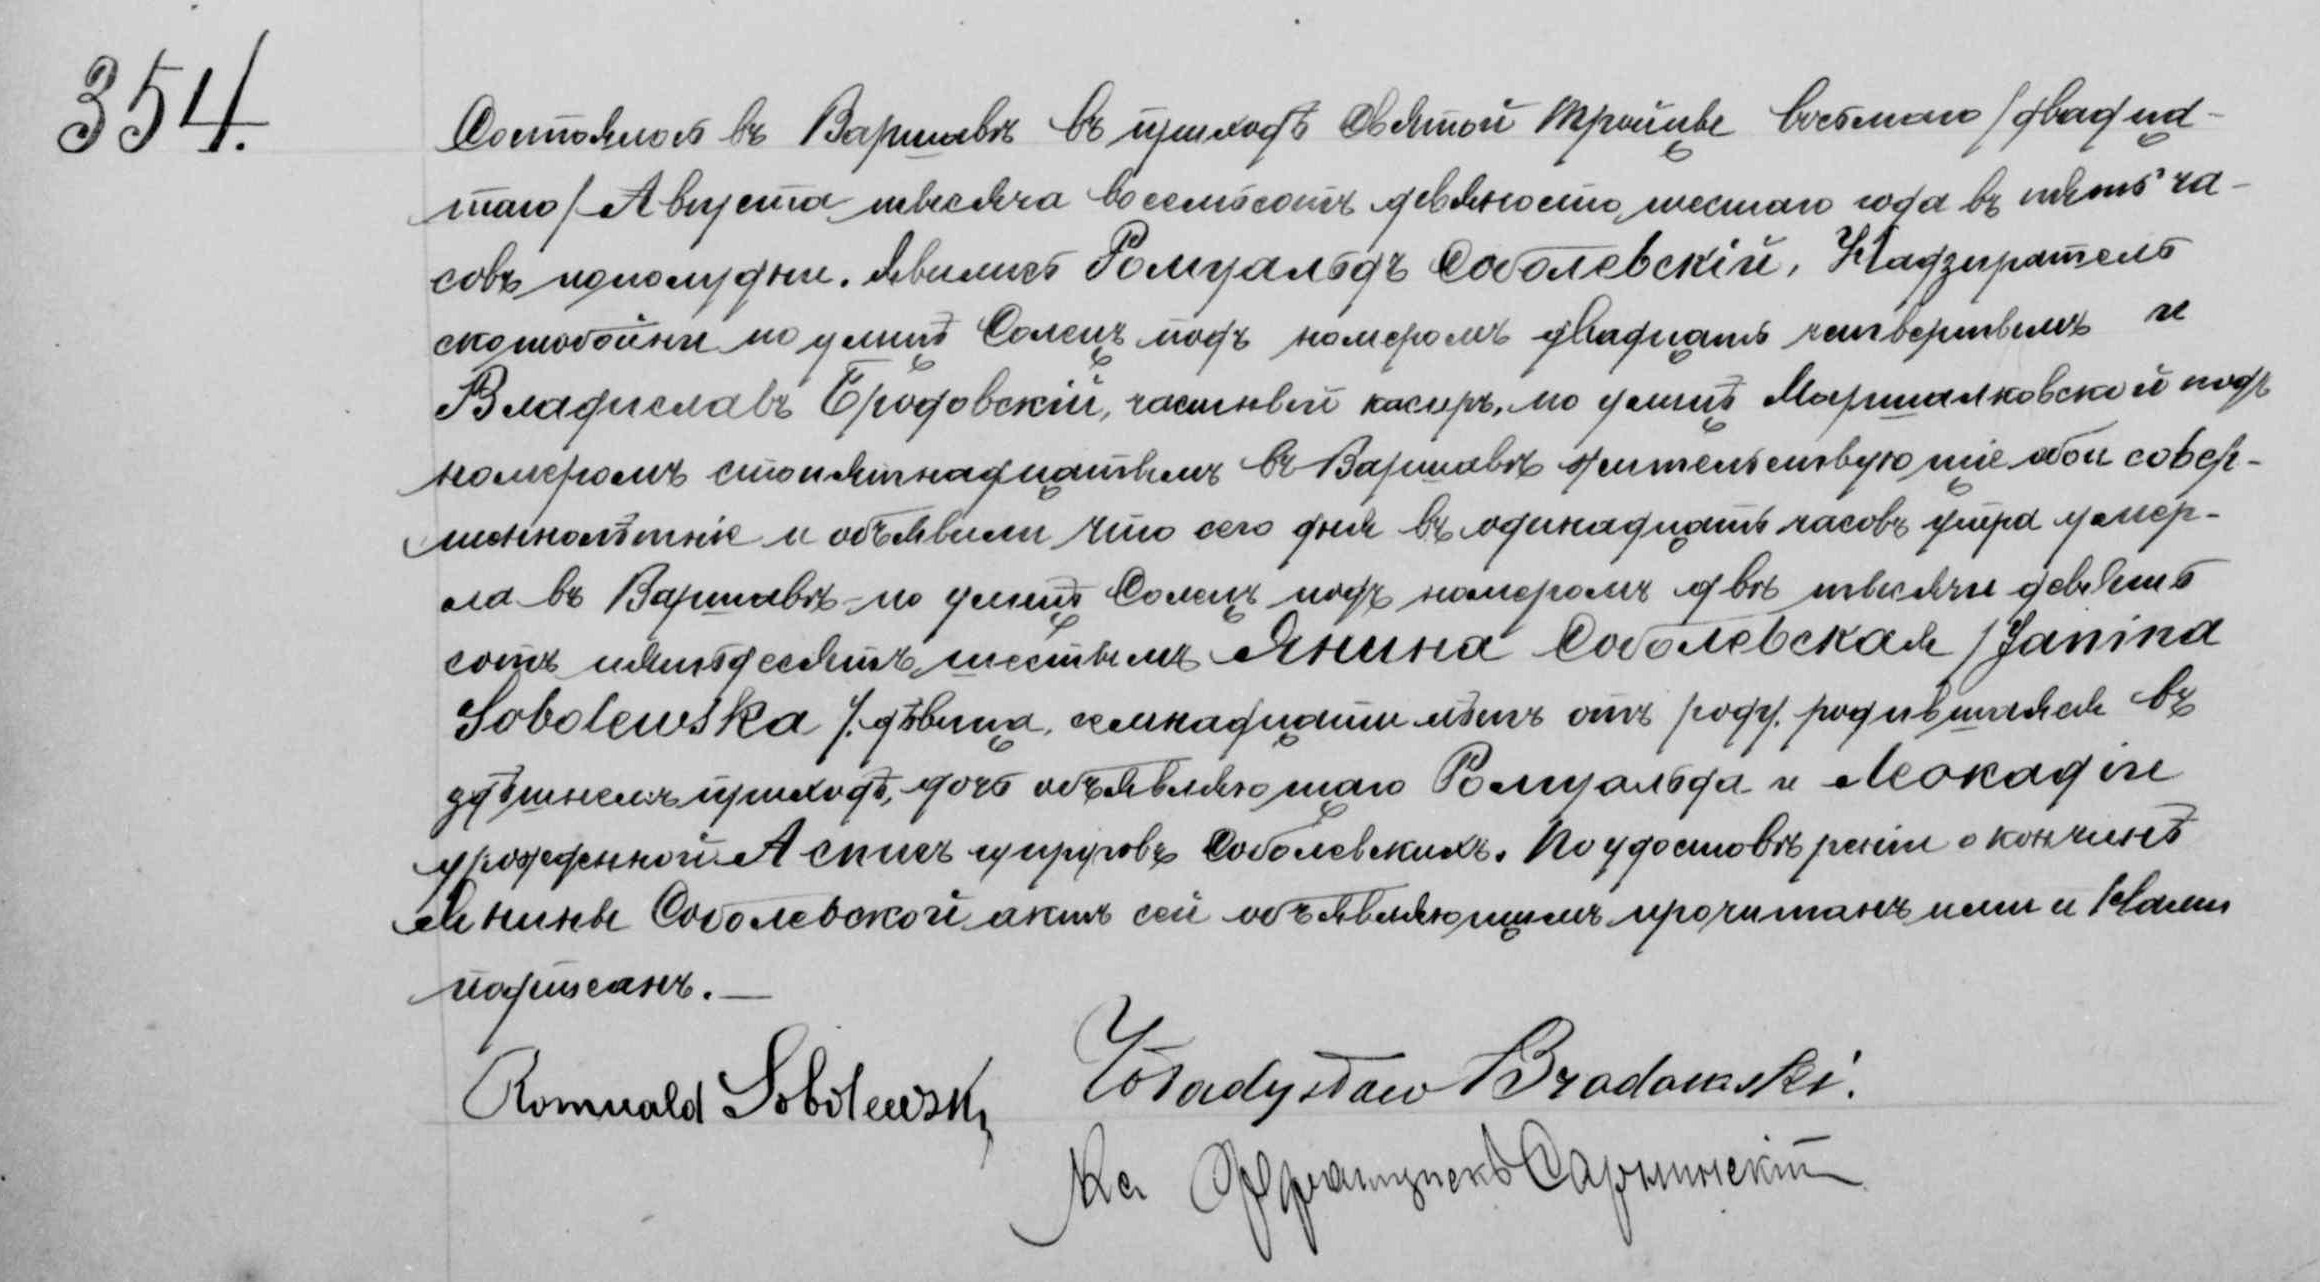 354.
Состоялось въ Варшавѣ въ приходѣ Святой Тройцы восьмаго /двадца-
таго/ Августа тысяча восемьсотъ девяносто шестаго года въ пять ча-
совъ пополудни. Явились Ромуальдъ Соболевскій, Надзиратель
скотобойни по улицѣ Солецъ подъ номеромъ двадцать четвертымъ и
Владиславъ Бродовскій, частный касиръ, по улицѣ Маршалковской подъ
номеромъ стопятнадцатымъ въ Варшавѣ жительствующіе оба совер-
шеннолѣтніе и объявили что сего дня въ одинадцать часовъ утра умер-
ла въ Варшавѣ по улицѣ Солецъ подъ номеромъ двѣ тысячи девять
сотъ пятьдесятъ шестымъ Янина Соболевская /Janina
Sobolewska/. дѣвица, семнадцати лѣтъ отъ роду. родившаяся въ
здѣшнемъ приходѣ, дочь объявляющаго Ромуальда и Леокадіи
урожденной Асписъ супруговъ Соболевскихъ. По удостовѣреніи о кончинѣ
Янины Соболевской актъ сей объявляющимъ прочитанъ ими и Нами
подписанъ. —
Romuald Sobolewski Władysław Brodowski.
Кс Францискъ